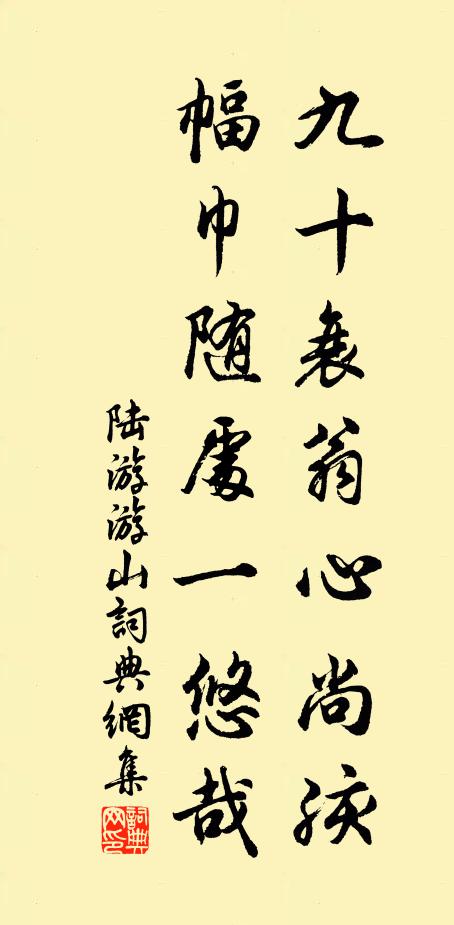 九十衰翁心尚孩
幅巾随處一悠哉
陆游游山詞典網集
詞典網印